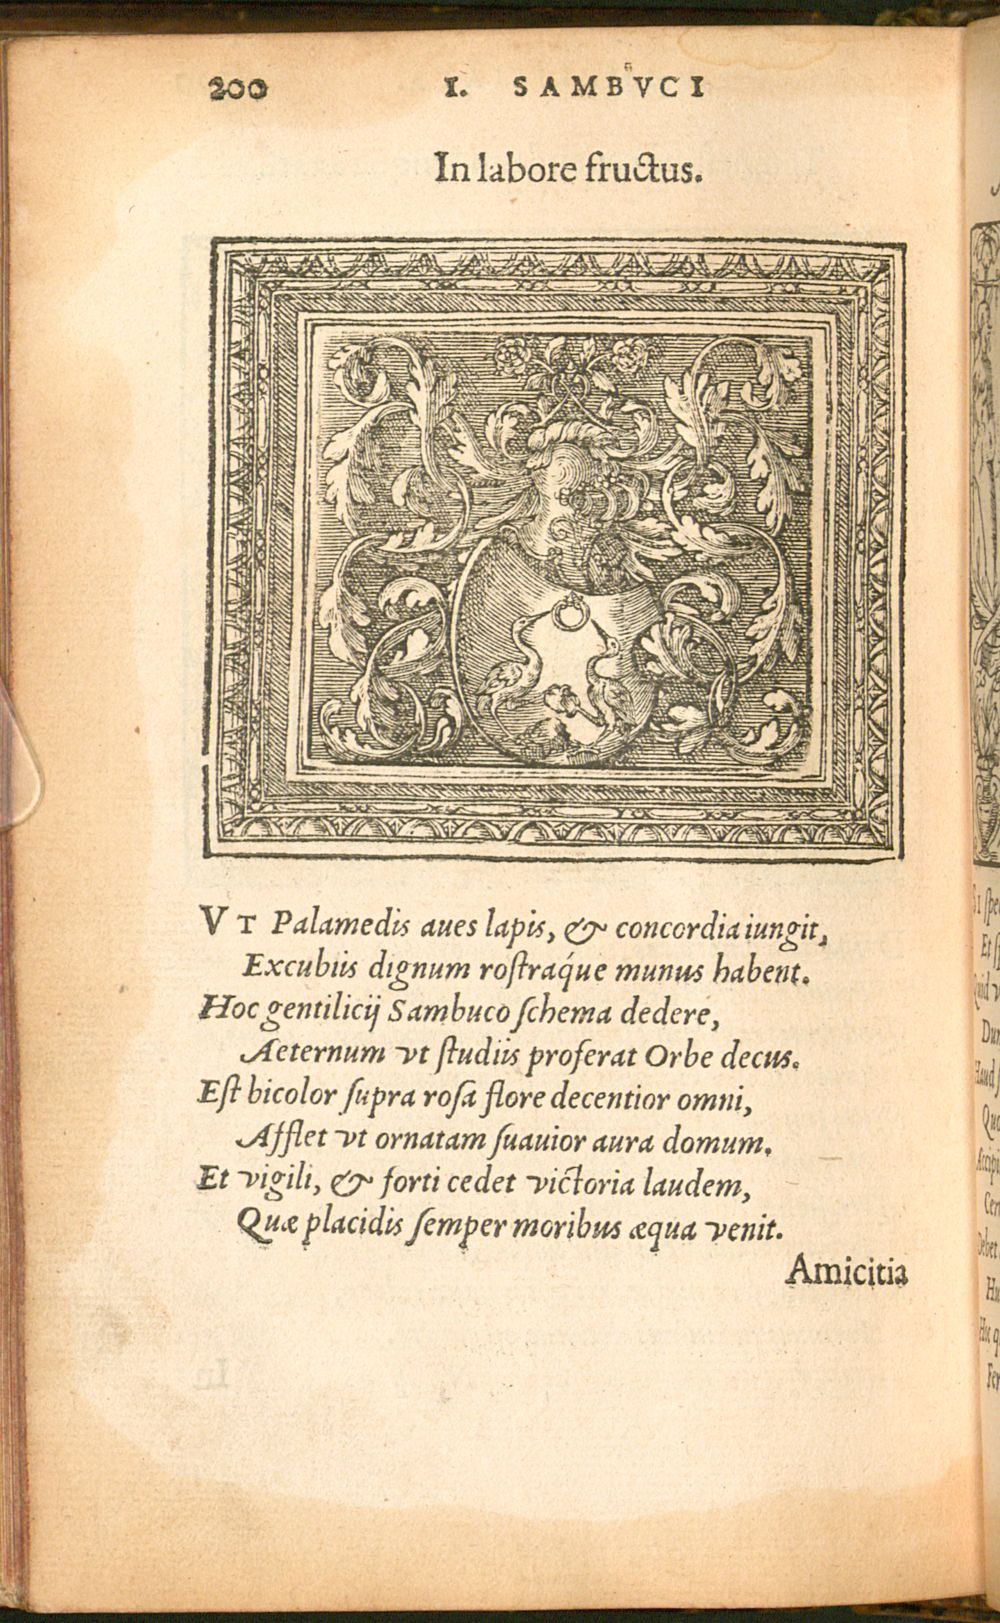 200 I. SAMBVCI
In labore fructus.
VT Palamedis aues lapis, & concordia iungit,
Excubiis dignum rostraq́ue munus habent.
Hoc gentilicij Sambuco schema dedere,
Aeternum vt studiis proferat Orbe decus.
Est bicolor supra rosa flore decentior omni,
Afflet vt ornatam suauior aura domum.
Et vigili, & forti cedet victoria laudem,
Quæ placidis semper moribus æqua venit.
Amicitia